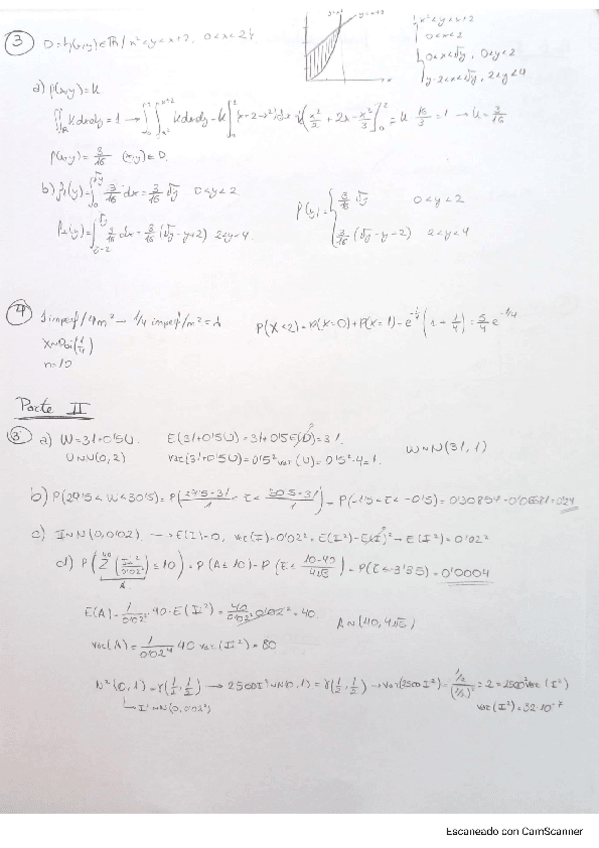 ③ D={(x,y)∈R/ x²<y<x+2, 0<x<2}
y=x² y=x+2
{x²<y<x+2
0<x<2
{0<x<√y, 0<y<2
y-2<x<√y, 2<y<4
a) f(x,y)=k
∬ k dxdy = 1 → ∫∫ k dxdy = k k(x²/2 + 2x - x³/3]₀² = k 16/3 = 1 → k = 3/16
f(x,y) = 3/16 (x,y)∈D.
b) f₁(y) = ∫₀^√y 3/16 dx = 3/16 √y 0<y<2
f₂(y) = ∫ 3/16 dx = 3/16 (√y-y+2) 2<y<4.
f(y) = { 3/16 √y 0<y<2
3/16 (√y-y+2) 2<y<4
④ 1 imperf/4m² → 1/4 imperf/m² = λ
P(X<2) = P(X=0)+P(X=1) = e^-1/4 (1 + 1/4) = 5/4 e^-1/4
Parte II
③ a) W=31+0'5U. E(31+0'5U)=31+0'5E(U)=31.
U~N(0,2) var(31+0'5U)=0'5² var(U)=0'5²·4=1. W~N(31,1)
b) P(29'5<W<30'5) = P( < z < 30'5-31/1) = P(-1'5<z<-0'5) = 0'30854-0'06681=0'24
c) I~N(0,0'02). → E(I)=0, var(I)=0'02² = E(I²)-E(I)² → E(I²)=0'02²
d) P(Σ⁴⁰ (I²/0'02²) ≤ 10) = P(A≤10) = P(z ≤ 10-40/4√5) = P(z≤-3'35) = 0'0004
A
E(A) = 1/0'02² · 40 · E(I²) = 40/0'02² 0'02² = 40.
A~N(40,4√5)
var(A) = 1/0'02⁴ 40 var(I²) = 80
N²(0,1) = γ(1/2,1/2) → 2500I² ~N(0,1) = γ(1/2,1/2) → var(2500I²) = = 2 = 2500² var(I²)
var(I²) = 32·10⁻⁷
Escaneado con CamScanner